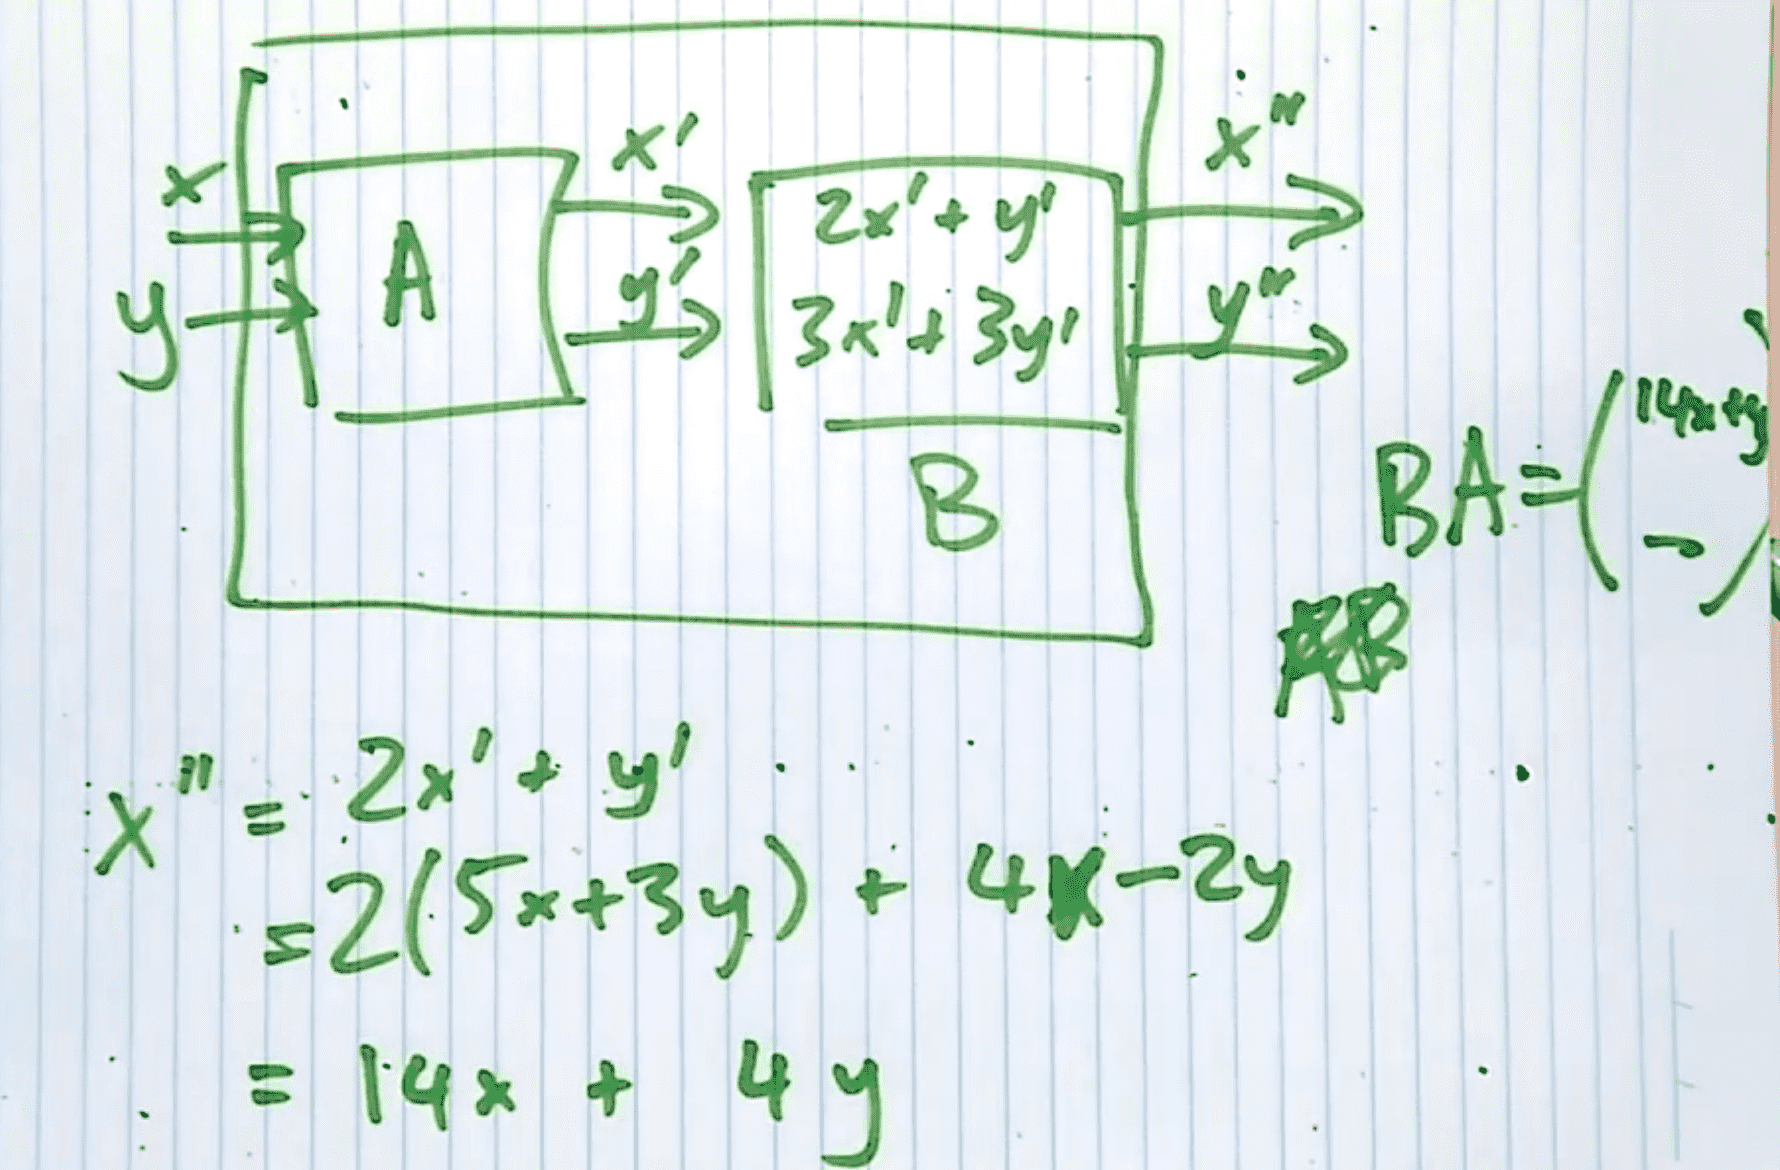 x
y
A
x'
y'
2x' + y'
3x' + 3y'
B
x"
y"
BA = (14x+y
-)
x" = 2x' + y'
= 2(5x+3y) + 4x-2y
= 14x + 4y